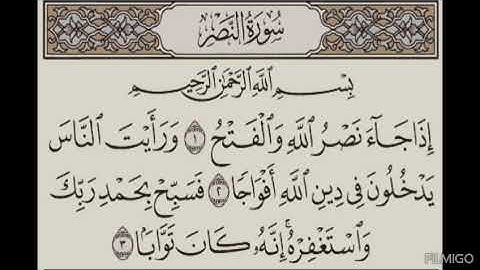 سُورَةُ النَّصْرِ
بِسْمِ اللَّهِ الرَّحْمَٰنِ الرَّحِيمِ
إِذَا جَاءَ نَصْرُ اللَّهِ وَالْفَتْحُ ١ وَرَأَيْتَ النَّاسَ
يَدْخُلُونَ فِي دِينِ اللَّهِ أَفْوَاجًا ٢ فَسَبِّحْ بِحَمْدِ رَبِّكَ
وَاسْتَغْفِرْهُ ۚ إِنَّهُ كَانَ تَوَّابًا ٣
FILMIGO